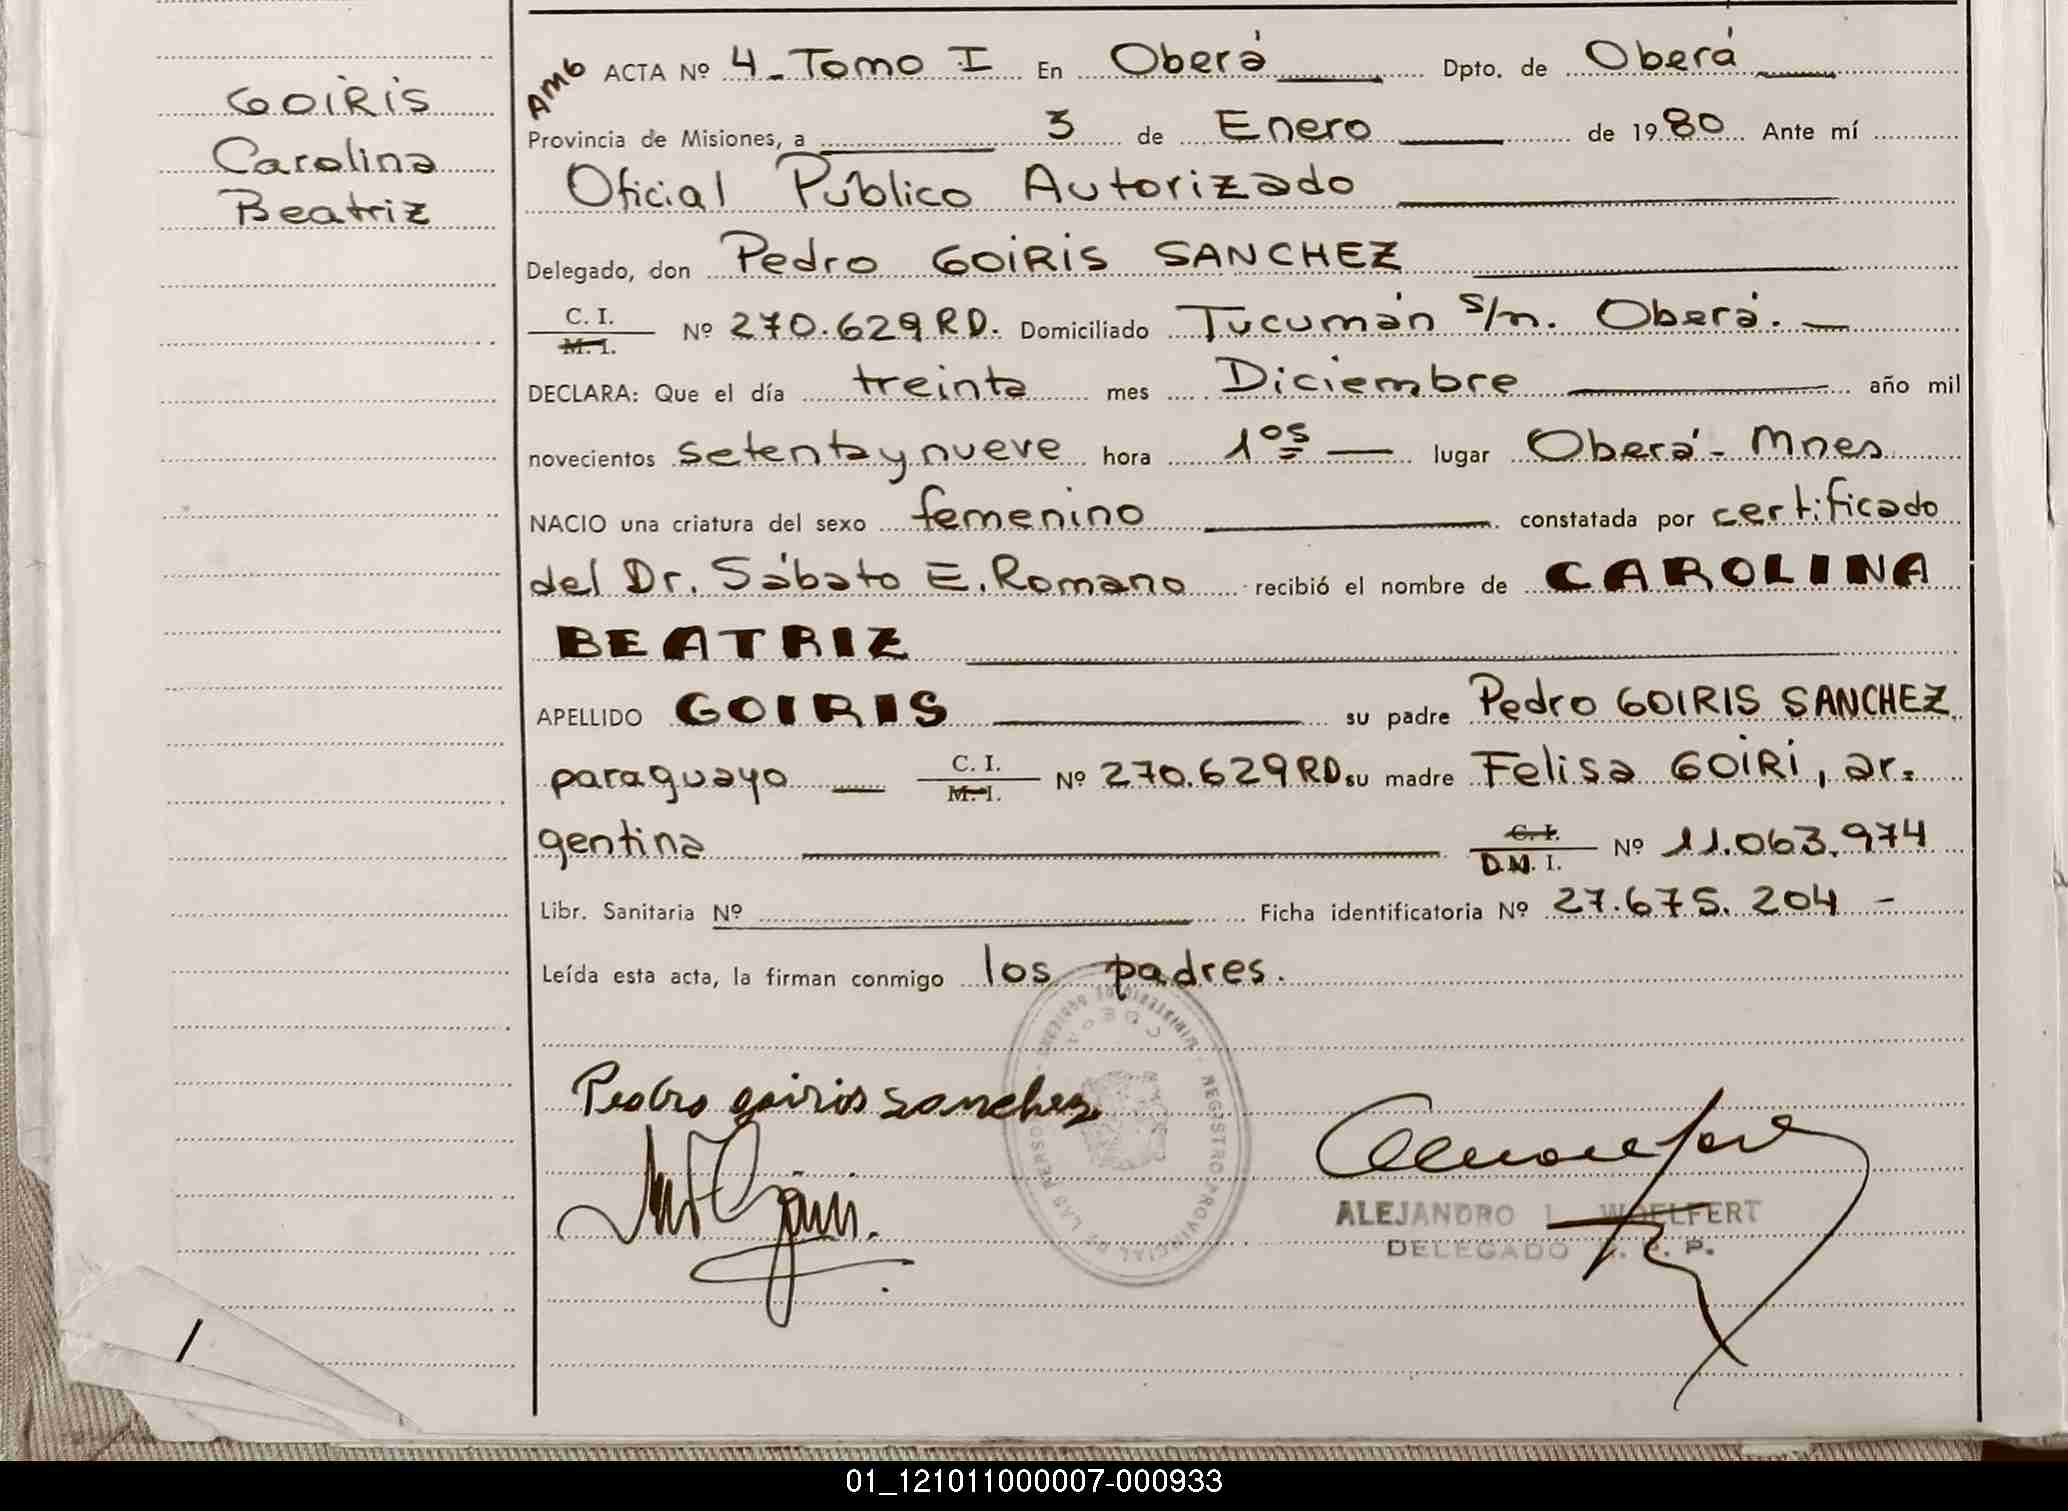 GOIRIS
Carolina
Beatriz
AMB ACTA Nº 4 - Tomo I En Oberá Dpto. de Oberá
Provincia de Misiones, a 3 de Enero de 1980 Ante mí
Oficial Público Autorizado
Delegado, don Pedro GOIRIS SANCHEZ
C. I.
M. I. Nº 270.629 RD. Domiciliado Tucumán s/n. Oberá.
DECLARA: Que el día treinta mes Diciembre año mil
novecientos setenta y nueve hora 1os lugar Oberá - Mnes
NACIO una criatura del sexo femenino constatada por certificado
del Dr. Sábato E. Romano recibió el nombre de CAROLINA
BEATRIZ
APELLIDO GOIRIS su padre Pedro GOIRIS SANCHEZ
paraguayo C. I.
M. I. Nº 270.629 RD su madre Felisa GOIRI, ar-
gentina C. I.
D.N. I. Nº 11.063.974
Libr. Sanitaria Nº Ficha identificatoria Nº 27.675.204 -
Leída esta acta, la firman conmigo los padres.
Pedro goiris sanchez
REGISTRO PROVINCIAL DE LAS PERSONAS - MINISTERIO DE GOBIERNO
ALEJANDRO WOELFERT
DELEGADO R. P. P.
01_121011000007-000933